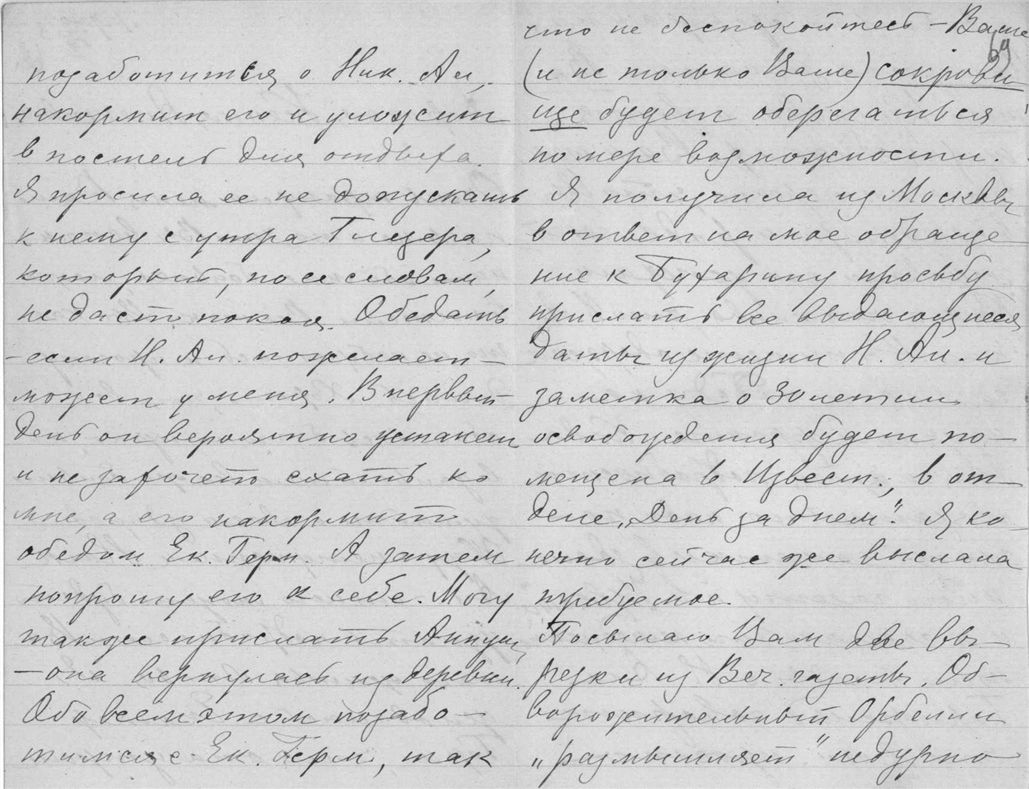 позаботиться о Ник. Ал.,
накормит его и уложит
в постель для отдыха.
Я просила ее не допускать
к нему с утра Глезера,
который, по ее словам,
не даст покоя. Обедать
– если Н. Ал. пожелает –
может у меня. В первый
день он вероятно устанет
и не захочет ехать ко
мне, а его накормит
обедом Ек. Герм. А затем
попрошу его к себе. Могу
также прислать Аннушку
– она вернулась из деревни.
Обо всем этом позабо–
тимся с Ек. Герм., так
что не беспокойтесь – Ваше
69
(и не только Ваше) сокрови
ще будет оберегаться
по мере возможности.
Я получила из Москвы
в ответ на мое обраще
ние к Бухарину просьбу
прислать все выдающиеся
даты из жизни Н. Ал. и
заметка о 30летии
освобождения будет по–
мещена в Извест., в от–
деле „День за днем“. Я ко–
нечно сейчас же выслала
требуемое.
Посылаю Вам две вы–
резки из Веч. газеты. Об–
ворожительный Орбели
„размышляет“ недурно